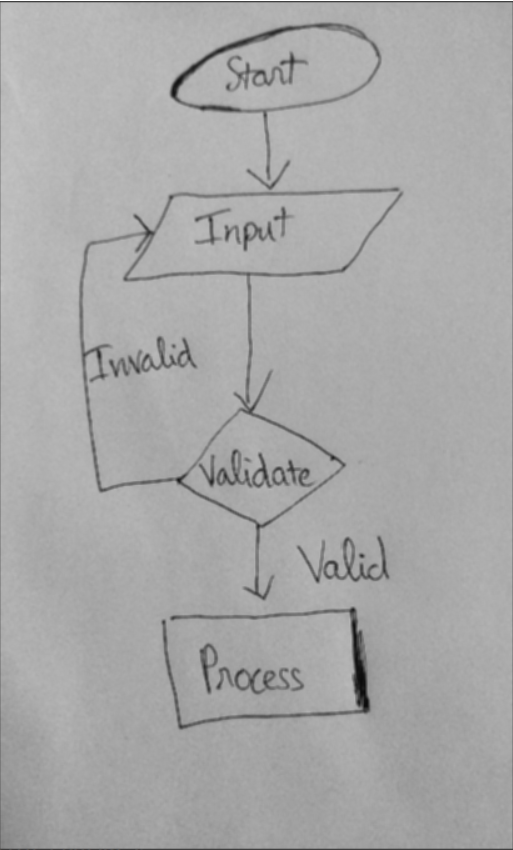 Start
Input
Invalid
Validate
Valid
Process